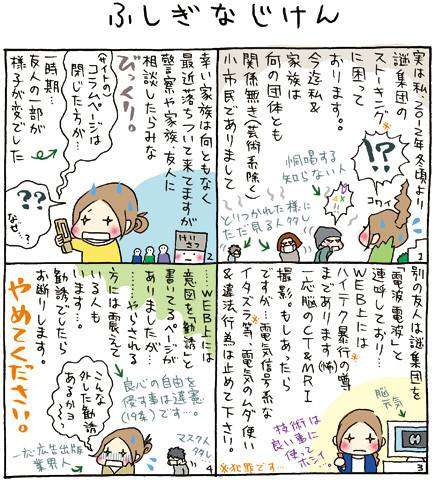 ふしぎなじけん
実は私、2012年冬頃より
謎集団の
ストーキング※
に困って
おります。
今迄私&
家族は
何の団体とも
関係無き(芸術系除く)
小市民でありまして
!?
コワイ
恫喝する
知らない人
とりつかれた様に
ただ見る人多し
1
幸い家族は何ともなく
最近落ちついて来てますが
警察や家族、友人に
相談したらみな
びっくり。
(サイトの)
コラムページは
閉じた方が…
一時期…
友人の一部が
様子が変でした
??
なぜ…?
けいさつ
2
別の友人は謎集団を
「電波電波」と
連呼しており…
WEB上には
ハイテク暴行の噂
まであります(怖)
一応脳のCT&MRI
撮影。もしあったら
ですが…電気信号系な
イタズラ等、電気のムダ使い
&違法行為は止めて下さい。
脳元気
技術は
良い事に
使って
ホシイ…。
※犯罪です…
3
……WEB上には
意図を「勧誘」と
書いてるページが
ありましたが…
……やらされる
方には震えて
いる人も
います…。
勧誘でしたら
お断りします。
やめてください。
良心の自由を
侵す事は違憲
(19条)です…。
こんな
外した勧誘
あるかヨ…
一応広告出版
業界人
マスク人
多し
4